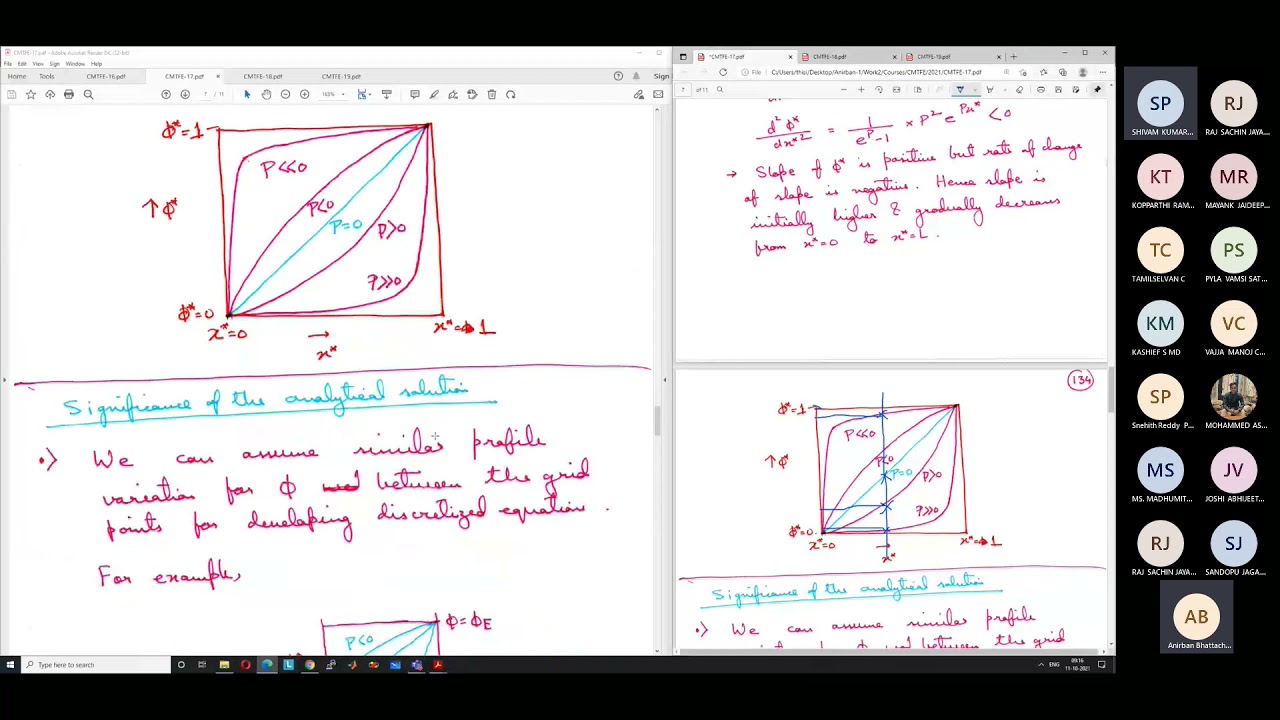 CMTFE-17.pdf - Adobe Acrobat Reader DC (32-bit)
File Edit View Sign Window Help
Home Tools CMTFE-16.pdf CMTFE-17.pdf × CMTFE-18.pdf CMTFE-19.pdf Sign
7 / 11 163%
ϕ*=1
P<<0
↑ϕ*
P<0
P=0
P>0
P>>0
ϕ*=0
x*=0
→
x*
x*=1
Significance of the analytical solution
•) We can assume similar profile
variation for ϕ between the grid
points for developing discretized equation.
For example,
P<0
ϕ=ϕE
*CMTFE-17.pdf × CMTFE-18.pdf × CMTFE-19.pdf × +
File | C:/Users/thisi/Desktop/Anirban-1/Work2/Courses/CMTFE/2021/CMTFE-17.pdf
7 of 11
d²ϕ*/dx*² = 1/(e^P-1) × P² e^(Px*) < 0
→ Slope of ϕ* is positive but rate of change
of slope is negative. Hence slope is
initially higher & gradually decreases
from x*=0 to x*=L.
134
ϕ*=1
P<<0
↑ϕ*
P<0
P=0
P>0
P>>0
ϕ*=0
x*=0
→
x*
x*=1
Significance of the analytical solution
•) We can assume similar profile
between the grid
SP
SHIVAM KUMAR...
RJ
RAJ SACHIN JAYA...
KT
KOPPARTHI RAM...
MR
MAYANK JAIDEEP...
TC
TAMILSELVAN C
PS
PYLA VAMSI SAT...
KM
KASHIEF S MD
VC
VAJJA MANOJ C...
SP
Snehith Reddy P...
MOHAMMED AS...
MS
MS. MADHUMIT...
JV
JOSHI ABHIJEET...
RJ
RAJ SACHIN JAYA...
SJ
SANDOPU JAGA...
AB
Anirban Bhattach...
Type here to search
ENG
09:16
11-10-2021